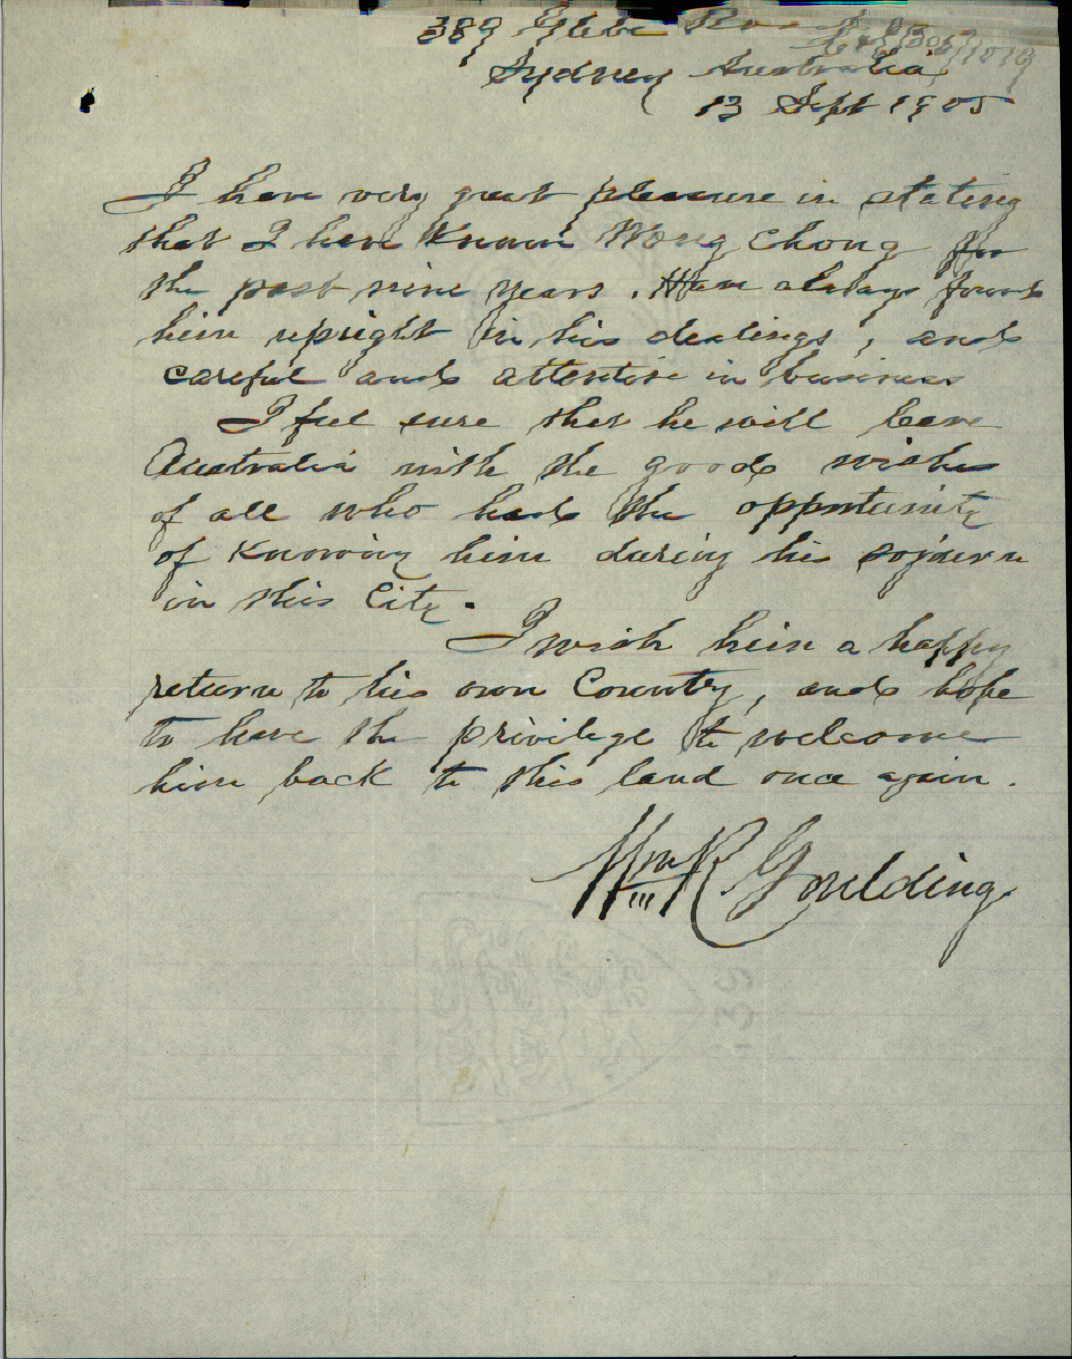 389 Glebe Road
Sydney Australia
13 Sept 1905
I have very great pleasure in stating
that I have Known Wong Chong for
the past nine years. Have always found
him upright in his dealings, and
careful and attentive in business
I feel sure that he will leave
Australia with the good wishes
of all who had the opportunity
of Knowing him during his sojourn
in this City.
I wish him a happy
return to his own Country, and hope
to have the privilege to welcome
him back to this land once again.
Wm R. Goulding